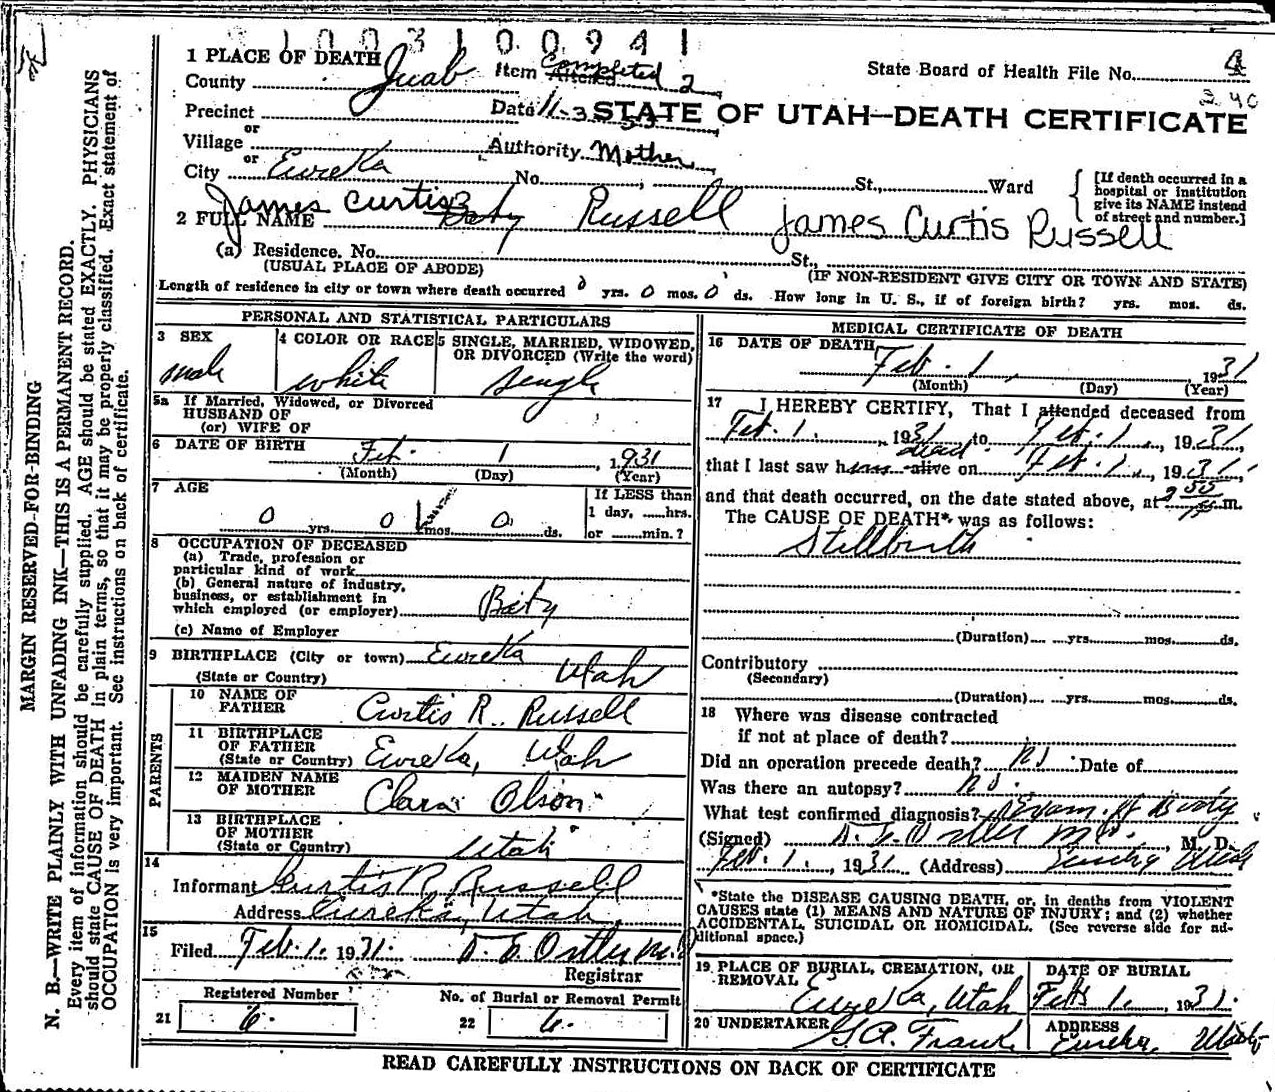 1003100941
1 PLACE OF DEATH
County Juab Item Completed 2 State Board of Health File No. 4
2 40
Precinct Date 11-3-53 STATE OF UTAH—DEATH CERTIFICATE
or
Village Authority Mother
or
City Eureka No. St., Ward
[If death occurred in a hospital or institution give its NAME instead of street and number.]
James Curtis
2 FULL NAME Baby Russell James Curtis Russell
(a) Residence. No. St.,
(USUAL PLACE OF ABODE) (IF NON-RESIDENT GIVE CITY OR TOWN AND STATE)
Length of residence in city or town where death occurred 0 yrs. 0 mos. 0 ds. How long in U. S., if of foreign birth? yrs. mos. ds.
PERSONAL AND STATISTICAL PARTICULARS
3 SEX
male
4 COLOR OR RACE
white
5 SINGLE, MARRIED, WIDOWED, OR DIVORCED (Write the word)
single
5a If Married, Widowed, or Divorced
HUSBAND OF
(or) WIFE OF
6 DATE OF BIRTH Feb. 1, 1931
(Month) (Day) (Year)
7 AGE
0 yrs. 0 mos. 0 ds.
If LESS than
1 day, hrs.
or min.?
8 OCCUPATION OF DECEASED
(a) Trade, profession or
particular kind of work
(b) General nature of industry,
business, or establishment in
which employed (or employer) Baby
(c) Name of Employer
9 BIRTHPLACE (City or town) Eureka
(State or Country) Utah
PARENTS
10 NAME OF
FATHER Curtis R. Russell
11 BIRTHPLACE
OF FATHER
(State or Country) Eureka, Utah
12 MAIDEN NAME
OF MOTHER Clara Olson
13 BIRTHPLACE
OF MOTHER
(State or Country) Utah
14
Informant Curtis R. Russell
Address Eureka, Utah
15
Filed Feb. 1. 1931. Registrar
Registered Number
21 6.
No. of Burial or Removal Permit
22 6.
MEDICAL CERTIFICATE OF DEATH
16 DATE OF DEATH Feb. 1, 1931
(Month) (Day) (Year)
17 I HEREBY CERTIFY, That I attended deceased from
Feb. 1., 1931 to Feb. 1., 1931,
dead
that I last saw him alive on Feb. 1., 1931,
and that death occurred, on the date stated above, at m.
The CAUSE OF DEATH* was as follows:
Stillbirth
(Duration) yrs. mos. ds.
Contributory
(Secondary)
(Duration) yrs. mos. ds.
18 Where was disease contracted
if not at place of death?
Did an operation precede death? No Date of
Was there an autopsy? No.
What test confirmed diagnosis? Exam. of Body
(Signed) M. D.
Feb. 1., 1931 (Address) Eureka Utah
*State the DISEASE CAUSING DEATH, or, in deaths from VIOLENT
CAUSES state (1) MEANS AND NATURE OF INJURY; and (2) whether
ACCIDENTAL, SUICIDAL OR HOMICIDAL. (See reverse side for ad-
ditional space.)
19 PLACE OF BURIAL, CREMATION, OR
REMOVAL
Eureka, Utah
DATE OF BURIAL
Feb. 1., 1931.
20 UNDERTAKER
ADDRESS
Eureka, Utah
READ CAREFULLY INSTRUCTIONS ON BACK OF CERTIFICATE
MARGIN RESERVED FOR BINDING
N. B.—WRITE PLAINLY WITH UNFADING INK—THIS IS A PERMANENT RECORD.
Every item of information should be carefully supplied. AGE should be stated EXACTLY. PHYSICIANS
should state CAUSE OF DEATH in plain terms, so that it may be properly classified. Exact statement of
OCCUPATION is very important. See instructions on back of certificate.